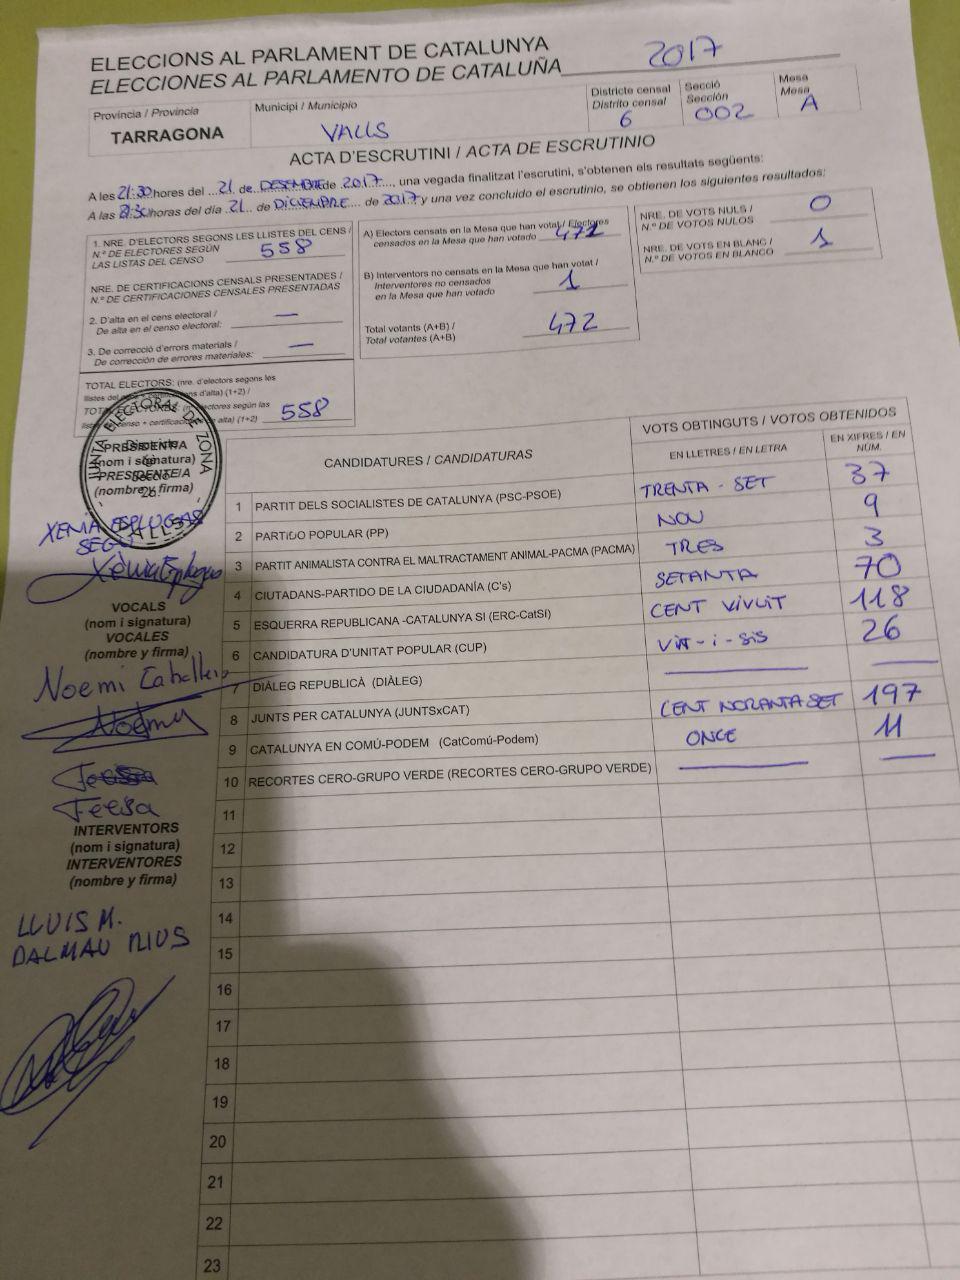 ELECCIONS AL PARLAMENT DE CATALUNYA
ELECCIONES AL PARLAMENTO DE CATALUÑA 2017
Província / Provincia
TARRAGONA
Municipi / Municipio
VALLS
Districte censal
Distrito censal
6
Secció
Sección
002
Mesa
Mesa
A
ACTA D'ESCRUTINI / ACTA DE ESCRUTINIO
A les 21:30 hores del 21 de DESEMBRE de 2017, una vegada finalitzat l'escrutini, s'obtenen els resultats següents:
A las 21:30 horas del día 21 de DICIEMBRE de 2017 y una vez concluido el escrutinio, se obtienen los siguientes resultados:
1. NRE. D'ELECTORS SEGONS LES LLISTES DEL CENS /
N.º DE ELECTORES SEGÚN
LAS LISTAS DEL CENSO
558
NRE. DE CERTIFICACIONS CENSALS PRESENTADES /
N.º DE CERTIFICACIONES CENSALES PRESENTADAS
2. D'alta en el cens electoral /
De alta en el censo electoral: —
3. De correcció d'errors materials /
De corrección de errores materiales: —
TOTAL ELECTORS: (nre. d'electors segons les
(1+2) /
(1+2) 558
A) Electors censats en la Mesa que han votat / Electores
censados en la Mesa que han votado
B) Interventors no censats en la Mesa que han votat /
Interventores no censados
en la Mesa que han votado
1
Total votants (A+B) /
Total votantes (A+B)
472
NRE. DE VOTS NULS /
N.º DE VOTOS NULOS
0
NRE. DE VOTS EN BLANC /
N.º DE VOTOS EN BLANCO
1
JUNTA ELECTORAL DE ZONA
VALLS
(nom i signatura)
(nombre y firma)
XENIA ESPLUGAS
SEGÚ
Xènia Esplugas
VOCALS
(nom i signatura)
VOCALES
(nombre y firma)
Noemi Caballero
Noemi
Teresa
INTERVENTORS
(nom i signatura)
INTERVENTORES
(nombre y firma)
LLUIS M.
DALMAU RIUS
CANDIDATURES / CANDIDATURAS
VOTS OBTINGUTS / VOTOS OBTENIDOS
EN LLETRES / EN LETRA
EN XIFRES / EN NÚM.
1 PARTIT DELS SOCIALISTES DE CATALUNYA (PSC-PSOE) TRENTA - SET 37
2 PARTIDO POPULAR (PP) NOU 9
3 PARTIT ANIMALISTA CONTRA EL MALTRACTAMENT ANIMAL-PACMA (PACMA) TRES 3
4 CIUTADANS-PARTIDO DE LA CIUDADANÍA (C's) SETANTA 70
5 ESQUERRA REPUBLICANA -CATALUNYA SI (ERC-CatSÍ) CENT VIVUIT 118
6 CANDIDATURA D'UNITAT POPULAR (CUP) VINT-i-SIS 26
7 DIÀLEG REPUBLICÀ (DIÀLEG) — —
8 JUNTS PER CATALUNYA (JUNTSxCAT) CENT NORANTA SET 197
9 CATALUNYA EN COMÚ-PODEM (CatComú-Podem) ONCE 11
10 RECORTES CERO-GRUPO VERDE (RECORTES CERO-GRUPO VERDE) — —
11
12
13
14
15
16
17
18
19
20
21
22
23